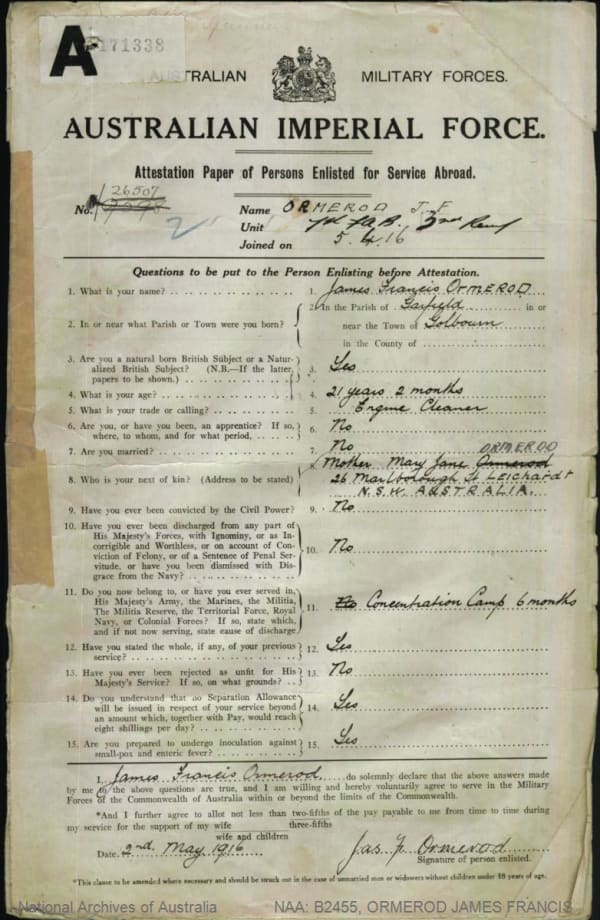 A
171338
AUSTRALIAN MILITARY FORCES.
AUSTRALIAN IMPERIAL FORCE.
Attestation Paper of Persons Enlisted for Service Abroad.
26507
No. Name ORMEROD J. F.
2 Unit 7th F.A.B. 3rd Reinf
Joined on 5.4.16
Questions to be put to the Person Enlisting before Attestation.
1. What is your name? 1. James Francis ORMEROD
2. In or near what Parish or Town were you born? 2. In the Parish of Garfield in or
near the Town of Golbourn
in the County of
3. Are you a natural born British Subject or a Natur-
alized British Subject? (N.B.—If the latter, 3. Yes
papers to be shown.)
4. What is your age? 4. 21 years 2 months
5. What is your trade or calling? 5. Engine Cleaner
6. Are you, or have you been, an apprentice? If so, 6. No
where, to whom, and for what period,
7. Are you married? 7. No
ORMEROD
8. Who is your next of kin? (Address to be stated) Mother Mary Jane Ormerod
26 Marlborough St Leichardt
N.S.W. AUSTRALIA.
9. Have you ever been convicted by the Civil Power? 9. No
10. Have you ever been discharged from any part of
His Majesty's Forces, with Ignominy, or as In-
corrigible and Worthless, or on account of Con- 10. No
viction of Felony, or of a Sentence of Penal Ser-
vitude, or have you been dismissed with Dis-
grace from the Navy?
11. Do you now belong to, or have you ever served in,
His Majesty's Army, the Marines, the Militia,
The Militia Reserve, the Territorial Force, Royal 11. No Concentration Camp 6 months
Navy, or Colonial Forces? If so, state which,
and if not now serving, state cause of discharge
12. Have you stated the whole, if any, of your previous 12. Yes
service?
13. Have you ever been rejected as unfit for His 13. No
Majesty's Service? If so, on what grounds?
14. Do you understand that no Separation Allowance
will be issued in respect of your service beyond 14. Yes
an amount which, together with Pay, would reach
eight shillings per day?
15. Are you prepared to undergo inoculation against 15. Yes
small-pox and enteric fever?
I, James Francis Ormerod do solemnly declare that the above answers made
by me to the above questions are true, and I am willing and hereby voluntarily agree to serve in the Military
Forces of the Commonwealth of Australia within or beyond the limits of the Commonwealth.
*And I further agree to allot not less than two-fifths of the pay payable to me from time to time during
three-fifths
my service for the support of my wife
wife and children
Date. 2nd May 1916 Jas F Ormerod
Signature of person enlisted.
*This clause to be amended where necessary and should be struck out in the case of unmarried men or widowers without children under 18 years of age.
National Archives of Australia NAA: B2455, ORMEROD JAMES FRANCIS